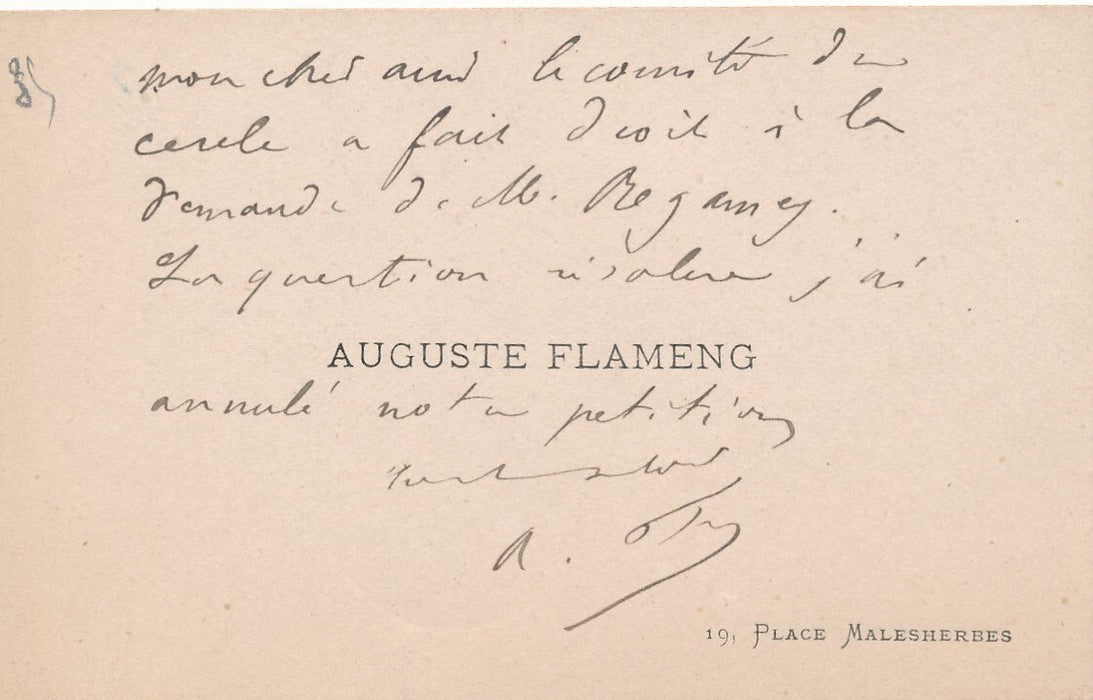 mon cher ami le comité du
cercle a fait droit à la
demande de M. Regamey.
La question résolue j'ai
AUGUSTE FLAMENG
annulé notre petition
A. Fg
19, PLACE MALESHERBES